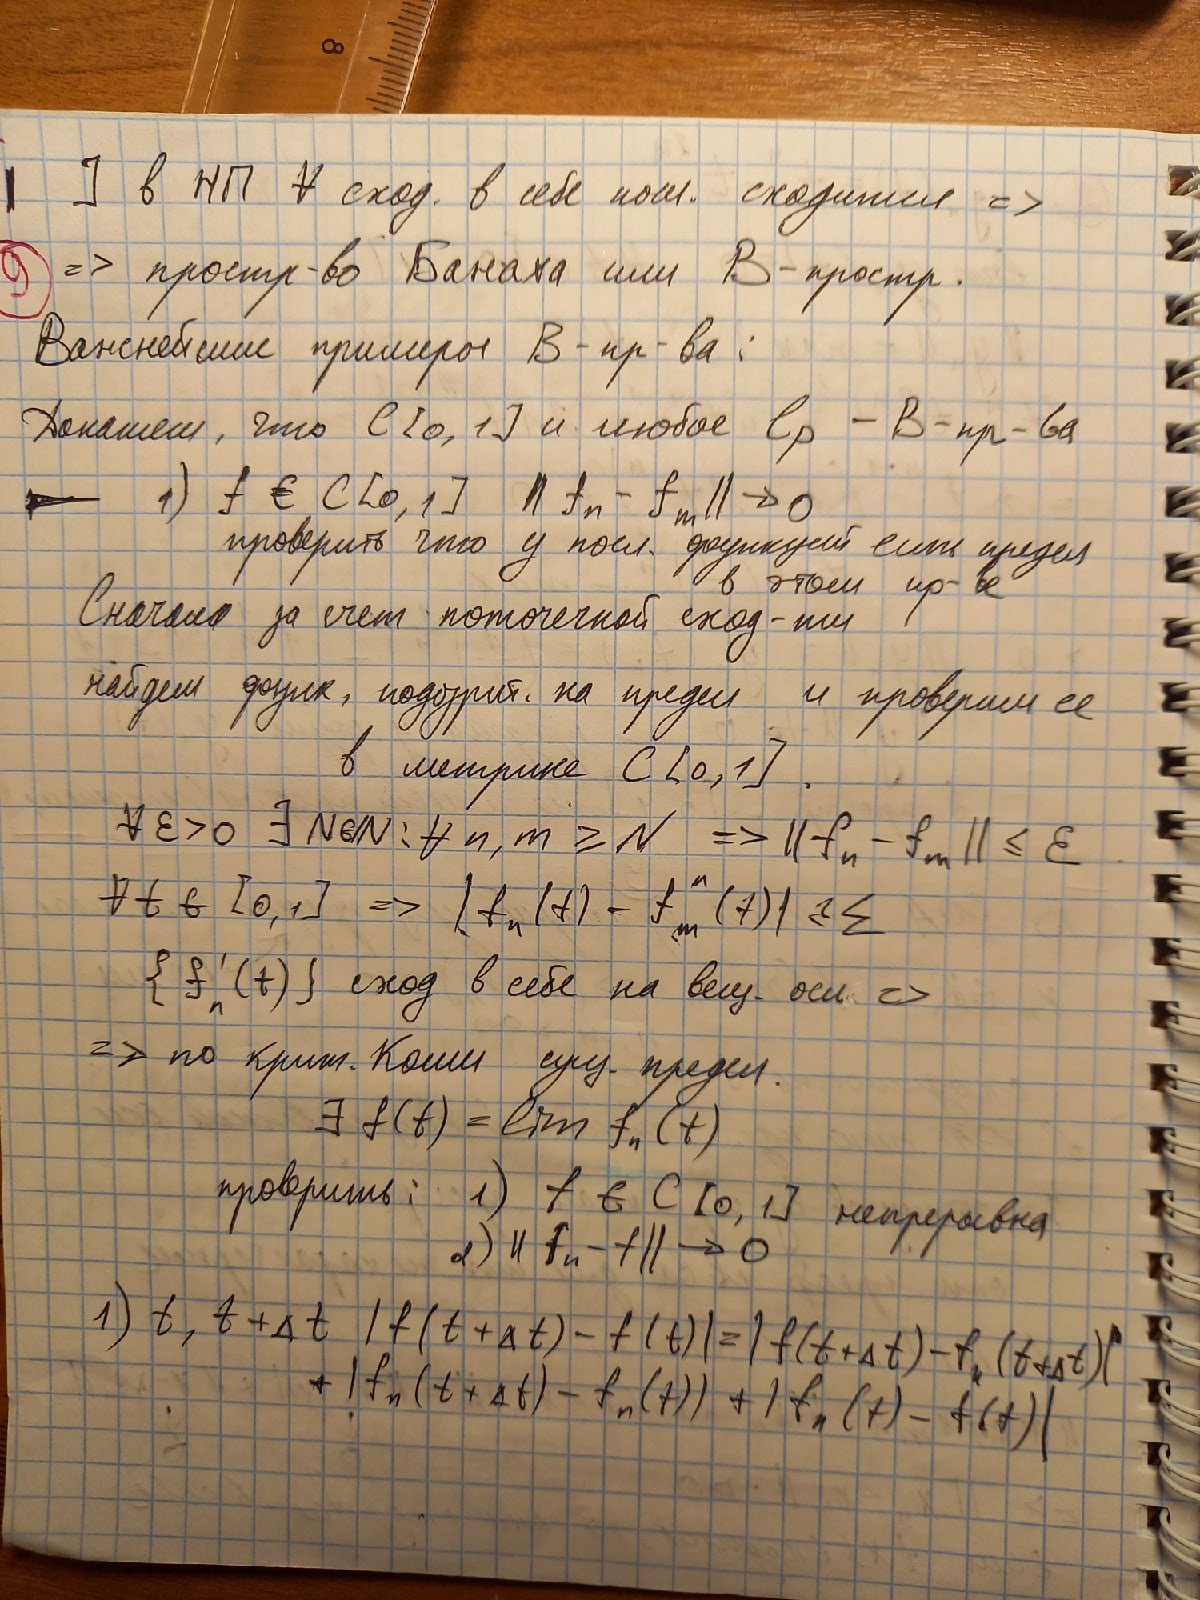 8
] в НП ∀ сход. в себе посл. сходится =>
9 => простр-во Банаха или В-простр.
Важнейшие примеры В-пр-ва:
Докажем, что C[0,1] и любое lp – В-пр-ва
1) f ∈ C[0,1] ||fn - fm|| → 0
проверить что у посл. функций есть предел
в этом пр-ве
Сначала за счет поточечной сход-ти
найдем функ, подозрит. на предел и проверим ее
в метрике C[0,1].
∀ε>0 ∃N∈N: ∀n,m ≥ N => ||fn - fm|| ≤ ε
∀t ∈ [0,1] => |fn(t) - fm(t)| ≤ ε
{fn(t)} сход в себе на вещ. оси =>
=> по крит. Коши сущ. предел.
∃ f(t) = lim fn(t)
проверить: 1) f ∈ C[0,1] непрерывна
2) ||fn - f|| → 0
1) t, t+Δt |f(t+Δt) - f(t)| = |f(t+Δt) - fn(t+Δt)|
+ |fn(t+Δt) - fn(t)| + |fn(t) - f(t)|